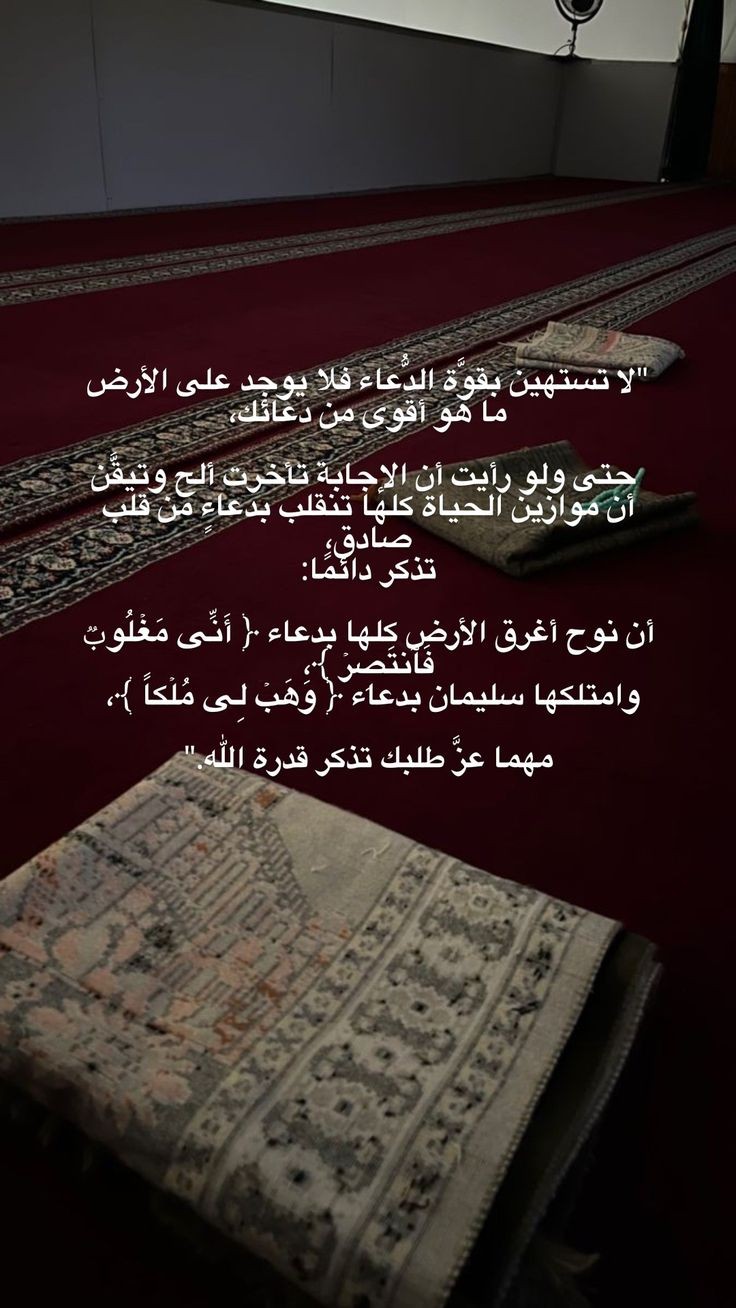 "لا تستهين بقوَّة الدُّعاء فلا يوجد على الأرض
ما هو أقوى من دعائك،
حتى ولو رأيت أن الإجابة تأخرت ألح وتيقَّن
أن موازين الحياة كلها تنقلب بدعاءٍ من قلب
صادق،
تذكر دائمًا:
أن نوح أغرق الأرض كلها بدعاء ﴿ أَنِّى مَغْلُوبٌ
فَٱنتَصِرْ ﴾،
وامتلكها سليمان بدعاء ﴿ وَهَبْ لِى مُلْكاً ﴾،
مهما عزَّ طلبك تذكر قدرة الله."